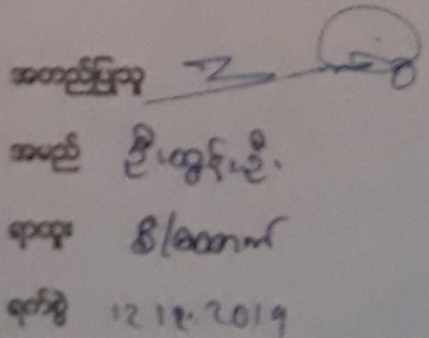 အတည်ပြုသူ
အမည် ဦးထွန်းဦး
ရာထူး စီ/ထောက်
ရက်စွဲ 12.12.2019